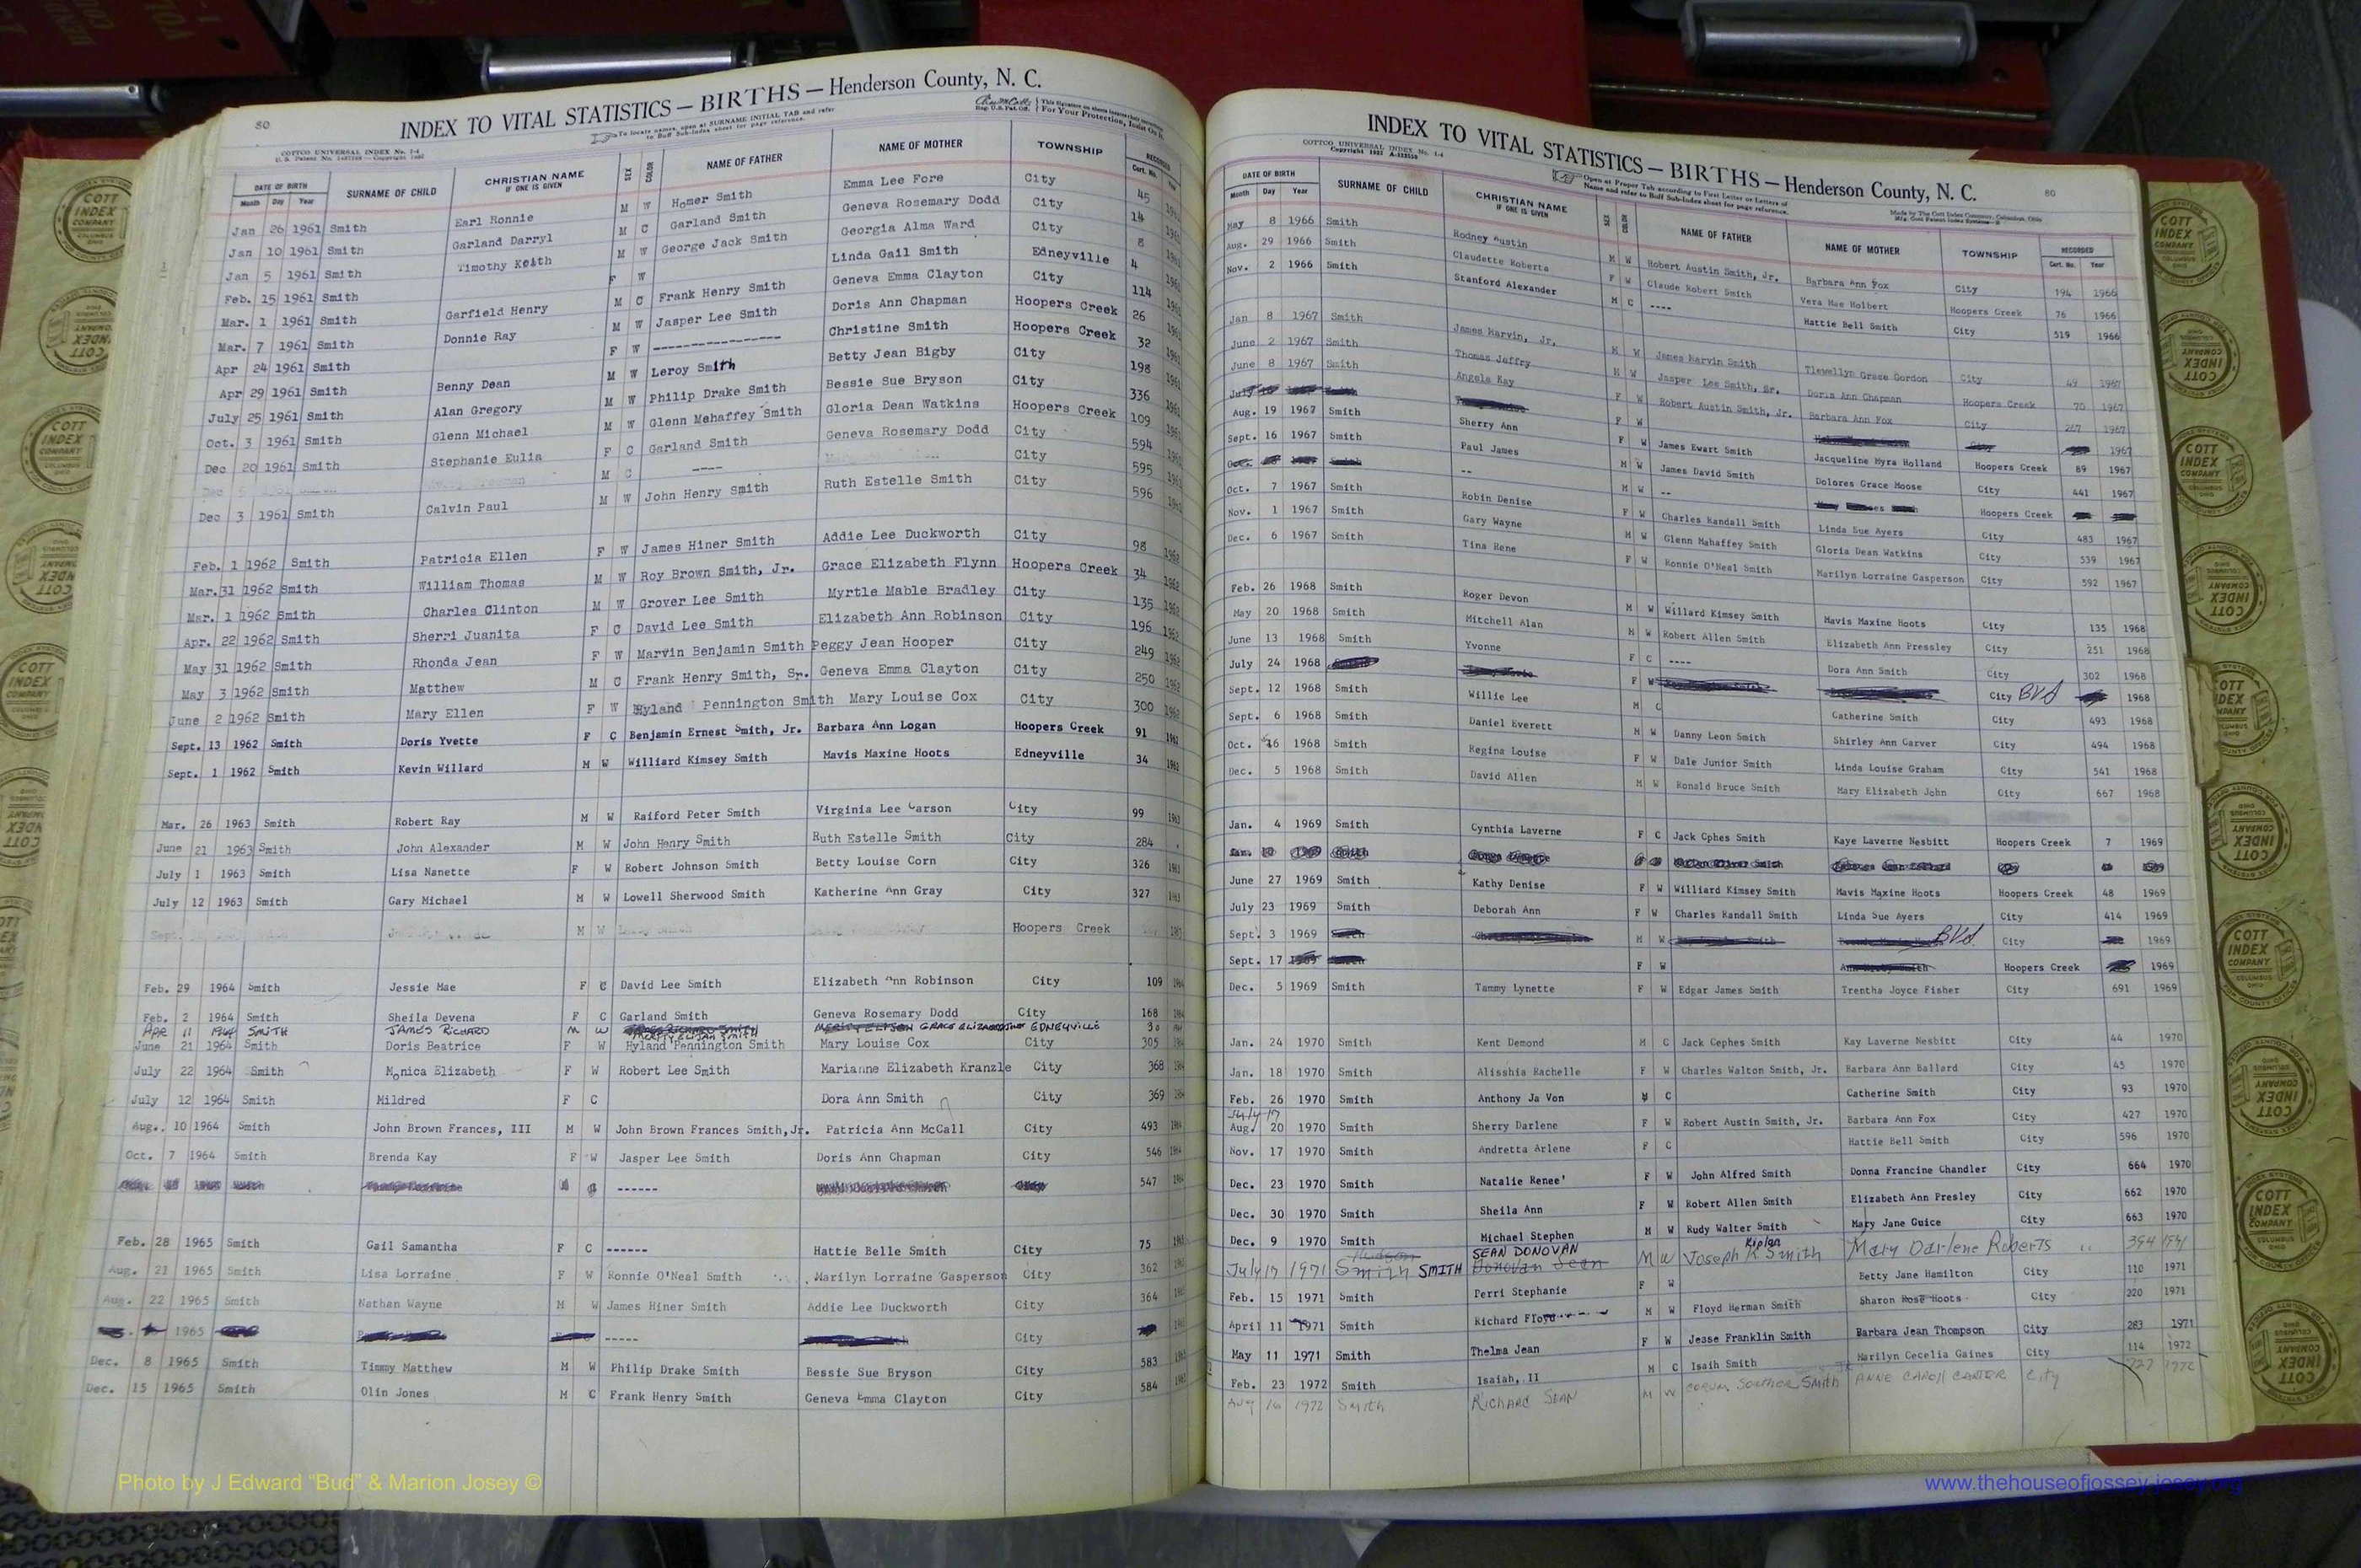 80
INDEX TO VITAL STATISTICS — BIRTHS — Henderson County, N. C.
To locate names, open at SURNAME INITIAL TAB and refer
to Buff Sub-Index sheet for page reference.
COTTCO UNIVERSAL INDEX No. 1-4
DATE OF BIRTH SURNAME OF CHILD CHRISTIAN NAME IF ONE IS GIVEN SEX COLOR NAME OF FATHER NAME OF MOTHER TOWNSHIP RECORDED
Month Day Year Cert. No.
Jan 26 1961 Smith Earl Ronnie M W Homer Smith Emma Lee Fore City 45
Jan 10 1961 Smith Garland Darryl M C Garland Smith Geneva Rosemary Dodd City 14
Jan 5 1961 Smith Timothy Keith M W George Jack Smith Georgia Alma Ward City 8
Feb. 15 1961 Smith F W Linda Gail Smith Edneyville 4
Mar. 1 1961 Smith Garfield Henry M C Frank Henry Smith Geneva Emma Clayton City 114
Mar. 7 1961 Smith Donnie Ray M W Jasper Lee Smith Doris Ann Chapman Hoopers Creek 26
Apr 24 1961 Smith F W ---------------- Christine Smith Hoopers Creek 32
Apr 29 1961 Smith Benny Dean M W Leroy Smith Betty Jean Bigby City 198
July 25 1961 Smith Alan Gregory M W Philip Drake Smith Bessie Sue Bryson City 336
Oct. 3 1961 Smith Glenn Michael M W Glenn Mahaffey Smith Gloria Dean Watkins Hoopers Creek 109
Dec 20 1961 Smith Stephanie Eulia F C Garland Smith Geneva Rosemary Dodd City 594
M C ---- City 595
Dec 3 1961 Smith Calvin Paul M W John Henry Smith Ruth Estelle Smith City 596
Feb. 1 1962 Smith Patricia Ellen F W James Hiner Smith Addie Lee Duckworth City 98
Mar. 31 1962 Smith William Thomas M W Roy Brown Smith, Jr. Grace Elizabeth Flynn Hoopers Creek 34
Mar. 1 1962 Smith Charles Clinton M W Grover Lee Smith Myrtle Mable Bradley City 135
Apr. 22 1962 Smith Sherri Juanita F C David Lee Smith Elizabeth Ann Robinson City 196
May 31 1962 Smith Rhonda Jean F W Marvin Benjamin Smith Peggy Jean Hooper City 249
May 3 1962 Smith Matthew M C Frank Henry Smith, Sr. Geneva Emma Clayton City 250
June 2 1962 Smith Mary Ellen F W Hyland Pennington Smith Mary Louise Cox City 300
Sept. 13 1962 Smith Doris Yvette F C Benjamin Ernest Smith, Jr. Barbara Ann Logan Hoopers Creek 91
Sept. 1 1962 Smith Kevin Willard M W Williard Kimsey Smith Mavis Maxine Hoots Edneyville 34
Mar. 26 1963 Smith Robert Ray M W Raiford Peter Smith Virginia Lee Carson City 99
June 21 1963 Smith John Alexander M W John Henry Smith Ruth Estelle Smith City 284
July 1 1963 Smith Lisa Nanette F W Robert Johnson Smith Betty Louise Corn City 326
July 12 1963 Smith Gary Michael M W Lowell Sherwood Smith Katherine Ann Gray City 327
Sept. M W Hoopers Creek
Feb. 29 1964 Smith Jessie Mae F C David Lee Smith Elizabeth Ann Robinson City 109
Feb. 2 1964 Smith Sheila Devena F C Garland Smith Geneva Rosemary Dodd City 168
APR 11 1964 SMITH JAMES RICHARD M W GRACE EDNEYVILLE 30
June 21 1964 Smith Doris Beatrice F W Hyland Pennington Smith Mary Louise Cox City 305
July 22 1964 Smith Monica Elizabeth F W Robert Lee Smith Marianne Elizabeth Kranzle City 368
July 12 1964 Smith Mildred F C Dora Ann Smith City 369
Aug. 10 1964 Smith John Brown Frances, III M W John Brown Frances Smith, Jr. Patricia Ann McCall City 493
Oct. 7 1964 Smith Brenda Kay F W Jasper Lee Smith Doris Ann Chapman City 546
------ 547
Feb. 28 1965 Smith Gail Samantha F C ------ Hattie Belle Smith City 75
Aug. 21 1965 Smith Lisa Lorraine F W Ronnie O'Neal Smith Marilyn Lorraine Gasperson City 362
Aug. 22 1965 Smith Nathan Wayne M W James Hiner Smith Addie Lee Duckworth City 364
1965 ----- City
Dec. 8 1965 Smith Timmy Matthew M W Philip Drake Smith Bessie Sue Bryson City 583
Dec. 15 1965 Smith Olin Jones M C Frank Henry Smith Geneva Emma Clayton City 584
Photo by J Edward “Bud” & Marion Josey ©
INDEX TO VITAL STATISTICS — BIRTHS — Henderson County, N. C.
80
COTTCO UNIVERSAL INDEX No. 1-4
Open at Proper Tab according to First Letter or Letters of
Name and refer to Buff Sub-Index sheet for page reference.
DATE OF BIRTH SURNAME OF CHILD CHRISTIAN NAME IF ONE IS GIVEN SEX COLOR NAME OF FATHER NAME OF MOTHER TOWNSHIP RECORDED
Month Day Year Cert. No. Year
May 8 1966 Smith Rodney Austin M W Robert Austin Smith, Jr. Barbara Ann Fox City 194 1966
Aug. 29 1966 Smith Claudette Roberta F W Claude Robert Smith Vera Mae Holbert Hoopers Creek 76 1966
Nov. 2 1966 Smith Stanford Alexander M C ---- Hattie Bell Smith City 519 1966
Jan 8 1967 Smith James Marvin, Jr. M W James Marvin Smith Llewellyn Grace Gordon City 49 1967
June 2 1967 Smith Thomas Jeffry M W Jasper Lee Smith, Sr. Doris Ann Chapman Hoopers Creek 70 1967
June 8 1967 Smith Angela Kay F W Robert Austin Smith, Jr. Barbara Ann Fox City 267 1967
July F W 1967
Aug. 19 1967 Smith Sherry Ann F W James Ewart Smith Jacqueline Myra Holland Hoopers Creek 89 1967
Sept. 16 1967 Smith Paul James M W James David Smith Dolores Grace Moose City 441 1967
-- M W -- Hoopers Creek
Oct. 7 1967 Smith Robin Denise F W Charles Randall Smith Linda Sue Ayers City 483 1967
Nov. 1 1967 Smith Gary Wayne M W Glenn Mahaffey Smith Gloria Dean Watkins City 539 1967
Dec. 6 1967 Smith Tina Rene F W Ronnie O'Neal Smith Marilyn Lorraine Gasperson City 592 1967
Feb. 26 1968 Smith Roger Devon M W Willard Kimsey Smith Mavis Maxine Hoots City 135 1968
May 20 1968 Smith Mitchell Alan M W Robert Allen Smith Elizabeth Ann Pressley City 251 1968
June 13 1968 Smith Yvonne F C ---- Dora Ann Smith City 302 1968
July 24 1968 F W City BVd 1968
Sept. 12 1968 Smith Willie Lee M C Catherine Smith City 493 1968
Sept. 6 1968 Smith Daniel Everett M W Danny Leon Smith Shirley Ann Carver City 494 1968
Oct. 16 1968 Smith Regina Louise F W Dale Junior Smith Linda Louise Graham City 541 1968
Dec. 5 1968 Smith David Allen M W Ronald Bruce Smith Mary Elizabeth John City 667 1968
Jan. 4 1969 Smith Cynthia Laverne F C Jack Cphes Smith Kaye Laverne Nesbitt Hoopers Creek 7 1969
June 27 1969 Smith Kathy Denise F W Williard Kimsey Smith Mavis Maxine Hoots Hoopers Creek 48 1969
July 23 1969 Smith Deborah Ann F W Charles Randall Smith Linda Sue Ayers City 414 1969
Sept. 3 1969 M W BVd. City 1969
Sept. 17 1969 F W Hoopers Creek 1969
Dec. 5 1969 Smith Tammy Lynette F W Edgar James Smith Trentha Joyce Fisher City 691 1969
Jan. 24 1970 Smith Kent Demond M C Jack Cephes Smith Kay Laverne Nesbitt City 44 1970
Jan. 18 1970 Smith Alisshia Rachelle F W Charles Walton Smith, Jr. Barbara Ann Ballard City 45 1970
Feb. 26 1970 Smith Anthony Ja Von M C Catherine Smith City 93 1970
July 17
Aug. 20 1970 Smith Sherry Darlene F W Robert Austin Smith, Jr. Barbara Ann Fox City 427 1970
Nov. 17 1970 Smith Andretta Arlene F C Hattie Bell Smith City 596 1970
Dec. 23 1970 Smith Natalie Renee' F W John Alfred Smith Donna Francine Chandler City 664 1970
Dec. 30 1970 Smith Sheila Ann F W Robert Allen Smith Elizabeth Ann Presley City 662 1970
Dec. 9 1970 Smith Michael Stephen M W Rudy Walter Smith Mary Jane Guice City 663 1970
July 17 1971 Smith SMITH SEAN DONOVAN Donovan Sean M W Joseph K Smith Mary Darlene Roberts " 394 1971
Feb. 15 1971 Smith Perri Stephanie F W Betty Jane Hamilton City 110 1971
April 11 1971 Smith Richard Floyd M W Floyd Herman Smith Sharon Rose Hoots City 220 1971
May 11 1971 Smith Thelma Jean F W Jesse Franklin Smith Barbara Jean Thompson City 283 1971
Feb. 23 1972 Smith Isaiah, II M C Isaih Smith Marilyn Cecelia Gaines City 114 1972
Aug 16 1972 Smith RICHARD SEAN M W Smith ANNE CAROLL CARTER City 1972
www.thehouseofjossey-josey.org